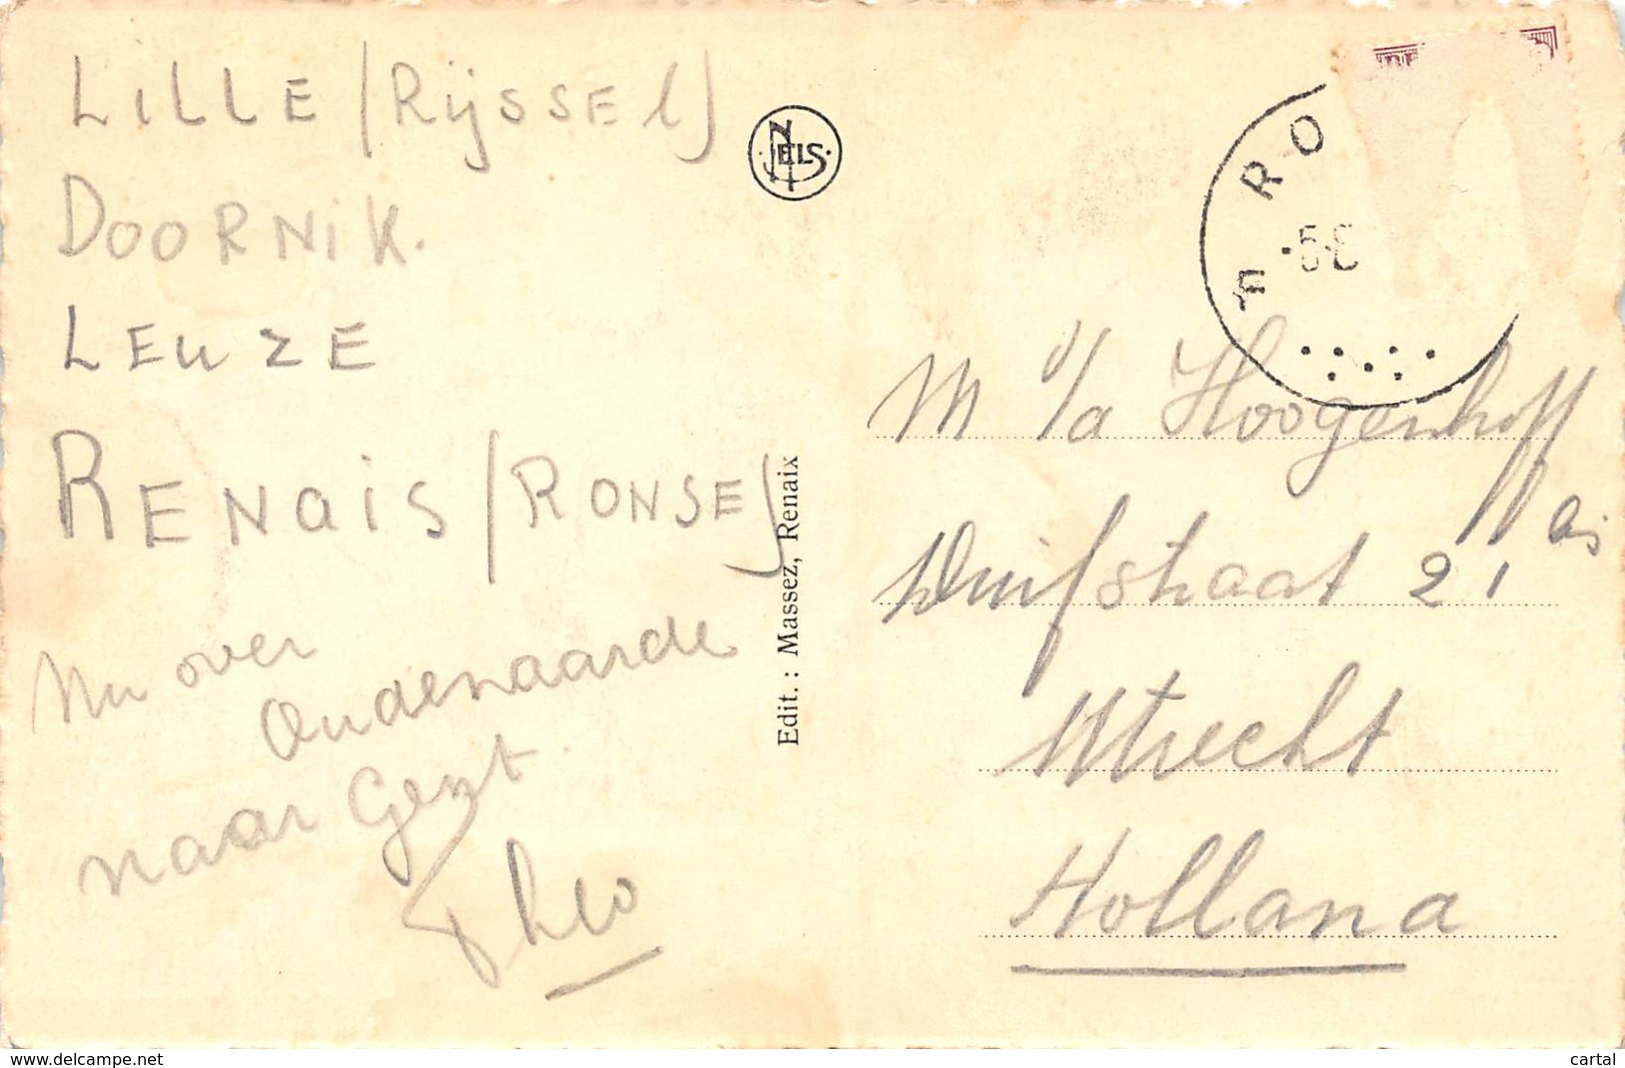 LiLLE (RijSSEl)
DOORNiK.
LEuZE
RENaiS (RONSE)
Nu over
Oudenaarde
naar Gent.
Theo
NELS
Edit. : Massez, Renaix
RO
-5-8
M v/a Hoogenhoff
Duifstraat 21 bis
Utrecht
Holland
www.delcampe.net
cartal